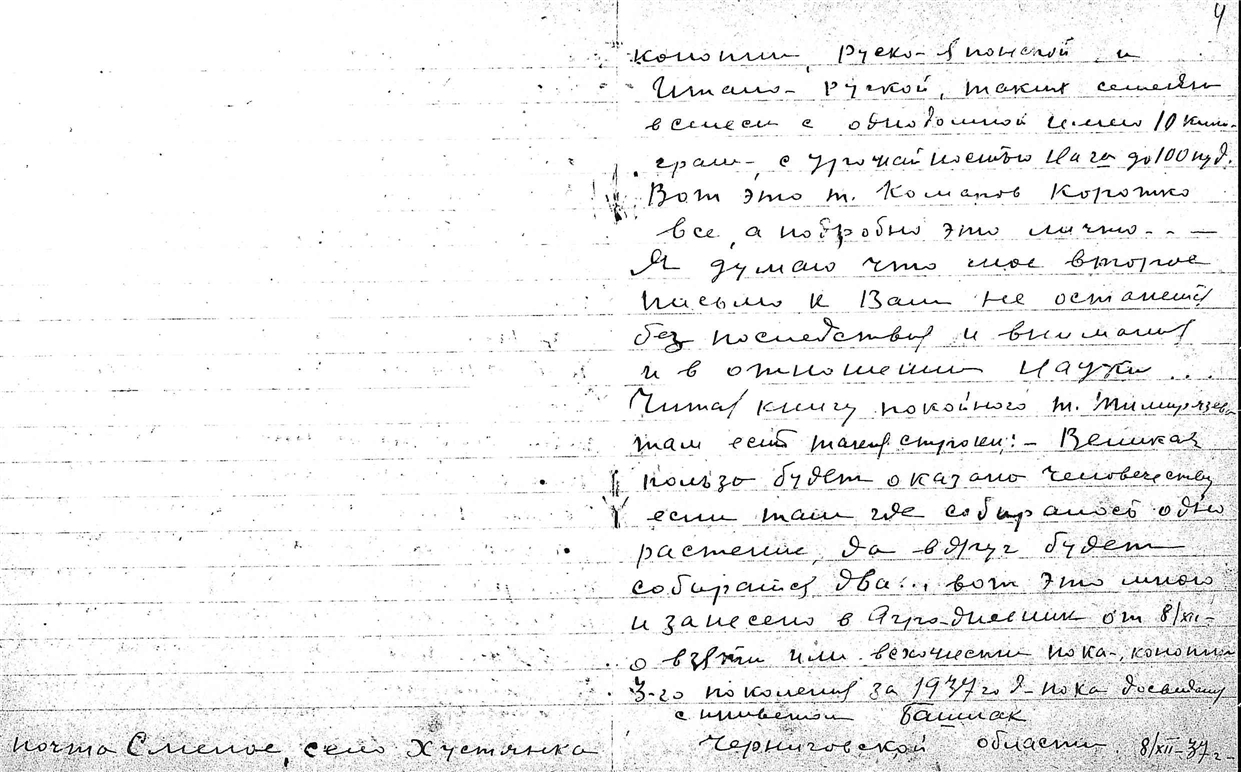 4
конопли, руско-японской и
Итало-Руской, таких семены
всмеси с однодомной имею 10 кило-
грам- с урожайностью на га до 100 пуд.
Вот это т. Комаров Коротко
все, а подробно это лично. - —
Я думаю что мое второе
письмо к Вам не останеться
без последствия и внимания
и в отношении Науки ...
Читая книгу покойного т. Тимирязева
там есть такия строки: - Великая
польза будет оказано человечеству
если там где собиралось одно
растение, да вдруг будет
собираться два..., вот это мною
и занесено в Агро-дневник от 8/XII-
о или всхожести пока-, конопли
3-го поколения за 1937 год- пока досвидания
с приветом Башлак
почта Смелое, село Хустянка Черниговской области. 8/XII-37 г-